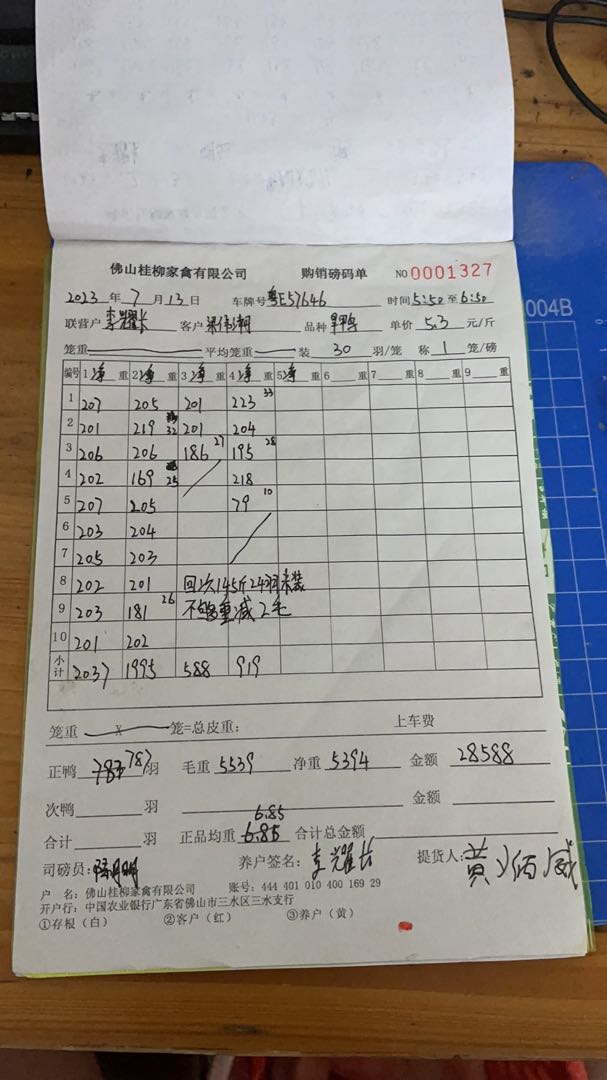 佛山桂柳家禽有限公司 购销磅码单 NO 0001327
2023年7月13日 车牌号 粤E57646 时间5:50至6:50
联营户 李耀长 客户 梁伟潮 品种 单价 5.3 元/斤
笼重 平均笼重 装 30 羽/笼 称 1 笼/磅
编号 1 净 重 2 净 重 3 净 重 4 净 重 5 净 重 6 重 7 重 8 重 9 重
1 207 205 201 223 33
2 201 219 32 201 204
3 206 206 186 27 195 28
4 202 169 25 218
5 207 205 79 10
6 203 204
7 205 203
8 202 201 回2次145斤24羽未装
9 203 181 26 不够重减2毛
10 201 202
小计 2037 1995 588 919
笼重 X 笼=总皮重: 上车费
正鸭 787 羽 毛重 5539 净重 5394 金额 28588
次鸭 羽 金额
6.85
合计 羽 正品均重 6.85 合计总金额
司磅员: 养户签名: 李耀长 提货人: 黄
户 名: 佛山桂柳家禽有限公司 账号: 444 401 010 400 169 29
开户行: 中国农业银行广东省佛山市三水区三水支行
①存根（白） ②客户（红） ③养户（黄）
004B